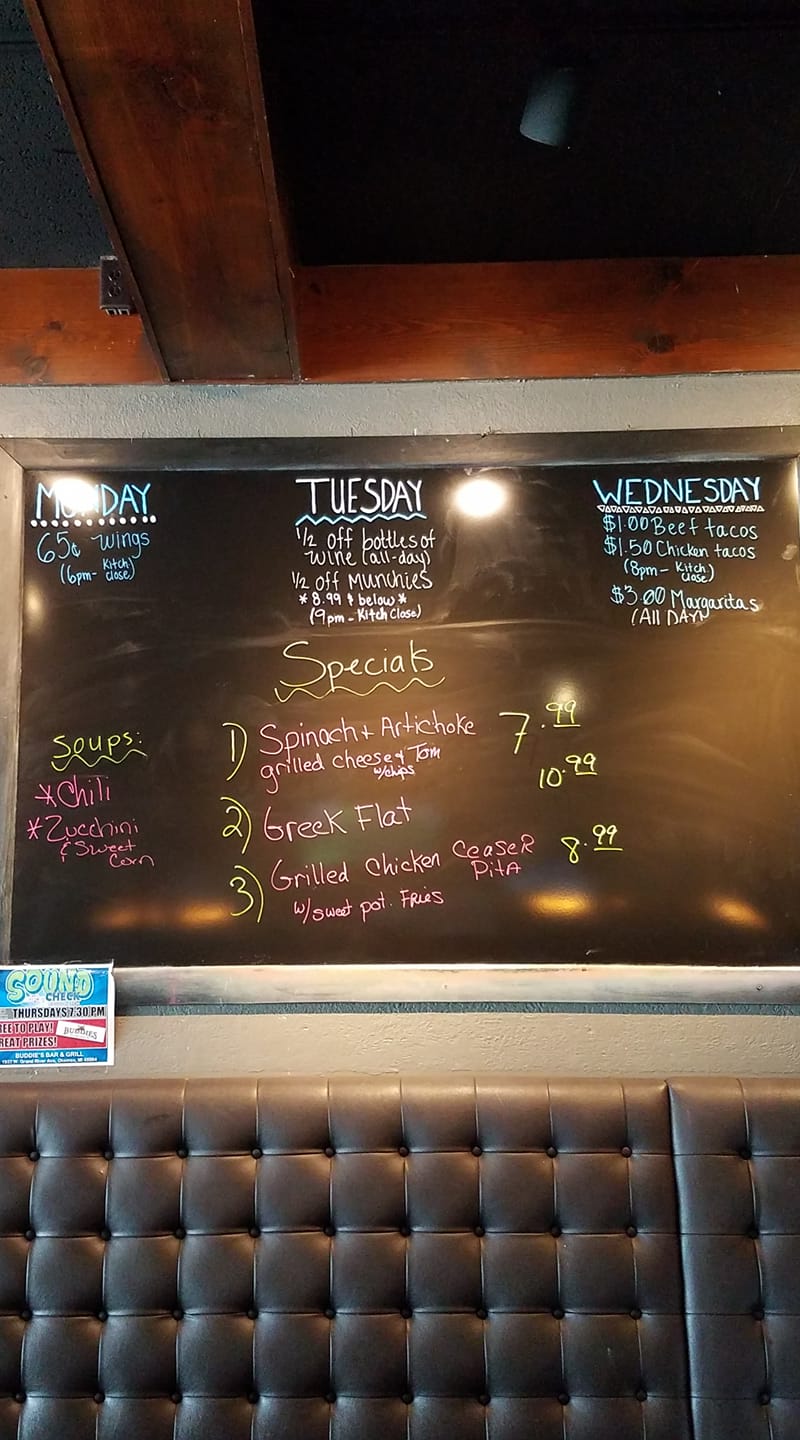 MONDAY
65¢ wings
(6pm- Kitch close)
TUESDAY
1/2 off bottles of
wine (all-day)
1/2 off Munchies
* 8.99 & below *
(9pm - Kitch Close)
WEDNESDAY
$1.00 Beef tacos
$1.50 Chicken tacos
(8pm - Kitch close)
$3.00 Margaritas
(All DAY)
Specials
Soups:
*Chili
*Zucchini
& Sweet
Corn
1) Spinach + Artichoke 7.99
grilled cheese & Tom
w/chips
10.99
2) Greek Flat
3) Grilled Chicken Ceaser 8.99
Pita
w/sweet pot. Fries
SOUND
CHECK
THURSDAYS 7:30 PM
REE TO PLAY!
REAT PRIZES!
BUDDIES
BUDDIE'S BAR & GRILL